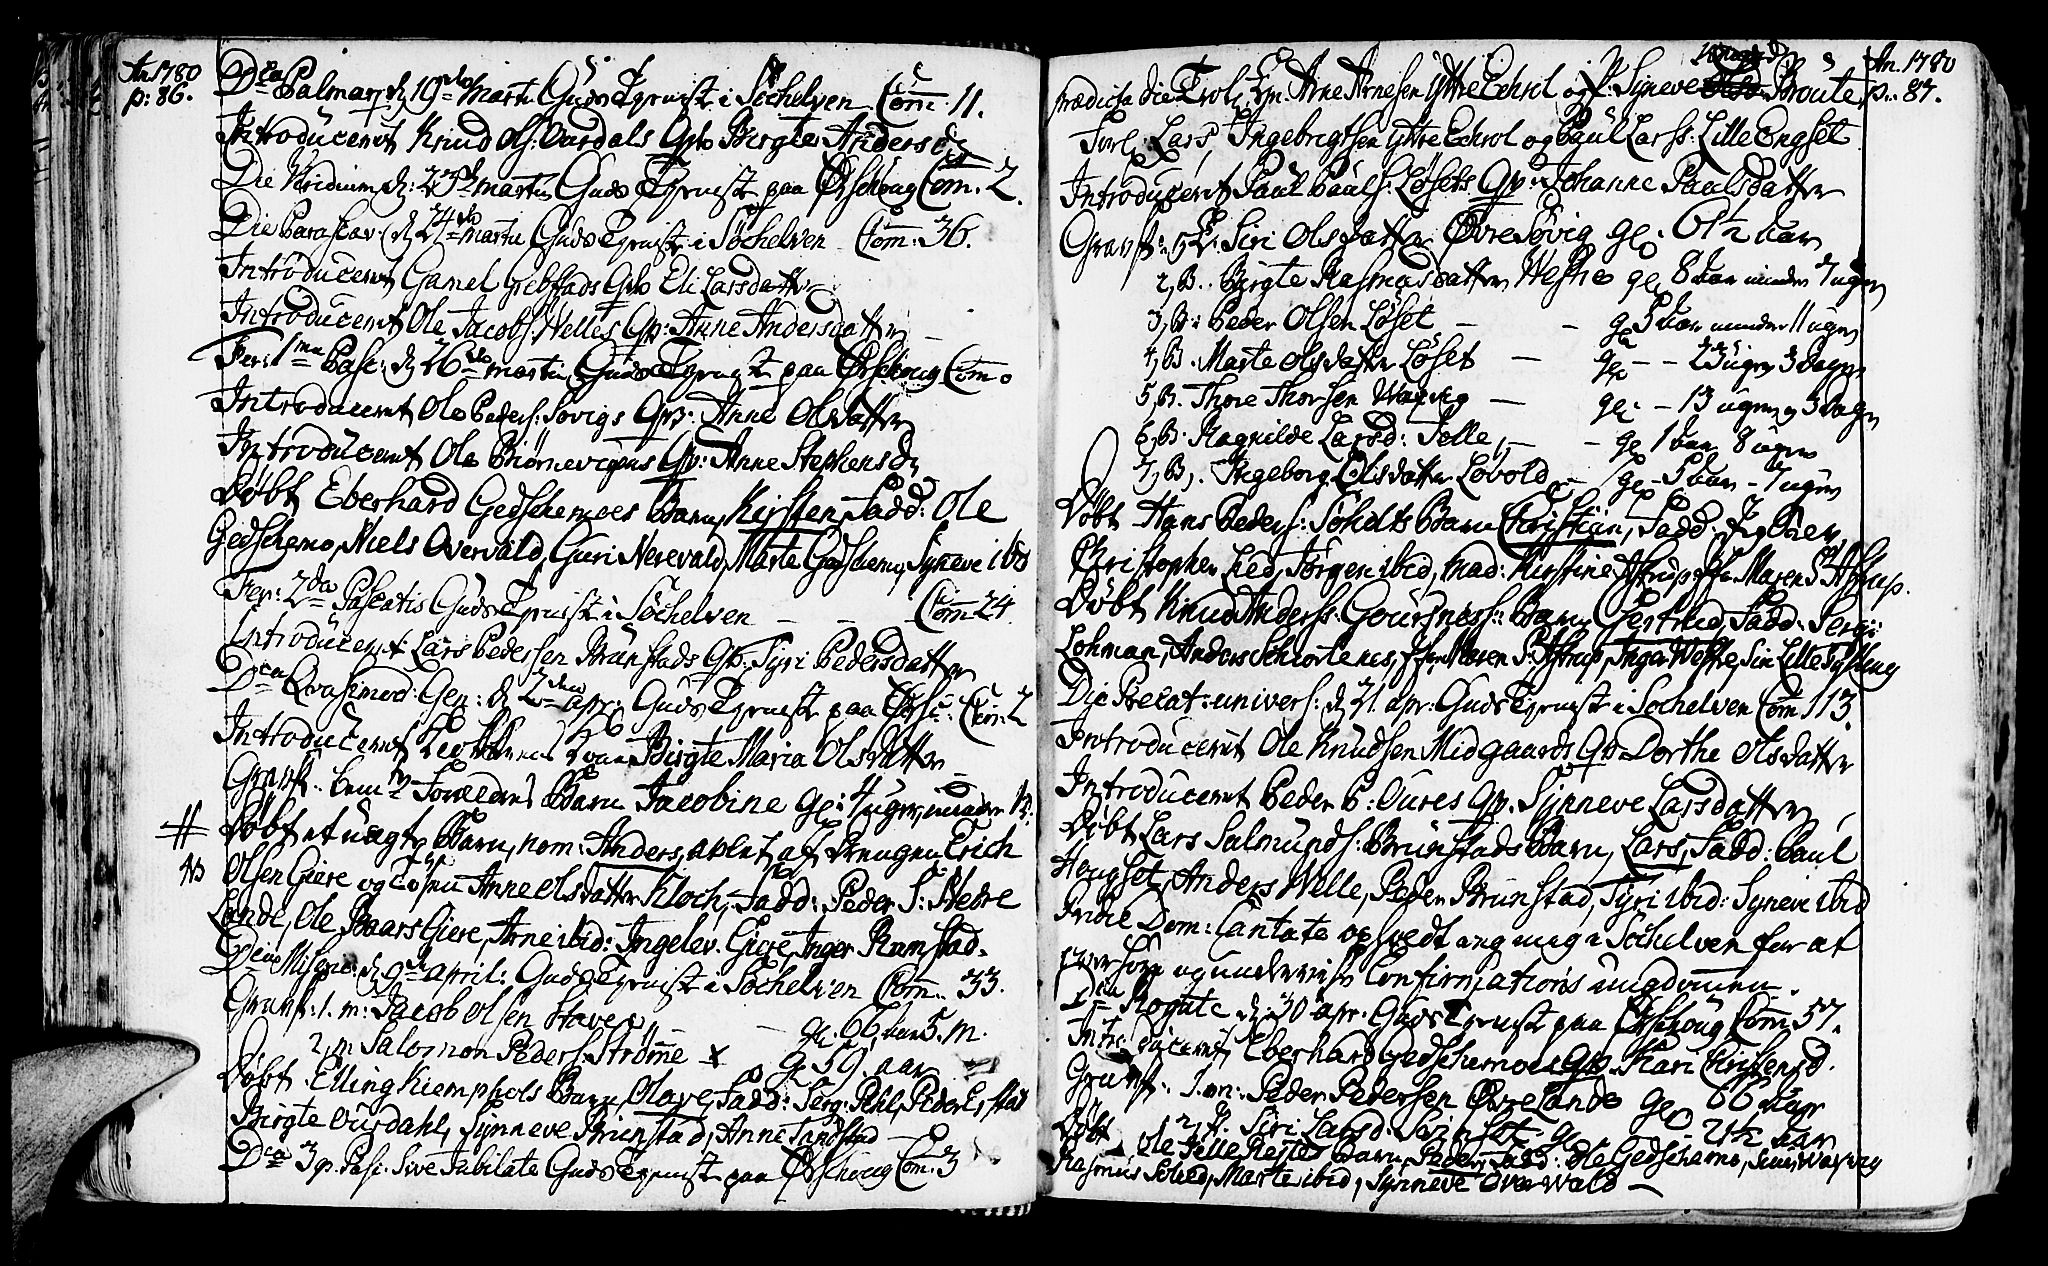 An 1780
p: 86.
Dca Palmar: d 19de Martii Guds Tieneste i Söchelven Com̄. 11.
Introduceret Knud Ols: Aardals Qv: Birgte Andersd:
Die Viridium d: martii Guds Tieneste paa Ørschoug Com. 2.
Die Parascev: d 24de martii Guds Tieneste i Söchelven Com̄. 36.
Introduceret Gamel Grebstads Qv: Eli Larsdatter
Introduceret Ole Jacobs: Velles Qv: Anne Andersdatter
Fer: 1ma Pasc: d 26de martii Guds Tieneste paa Ørschoug Com̄.
Introduceret Ole Peders: Søvigs Qv: Anne Olsdatter
Introduceret Ole Biørnevigens Qv: Anne Stephensd
Døbt Eberhard Gedschemoes Barn, Kirsten, Fadd: Ole
Gedschemo, Niels Overvald, Guri Nerevald, Marte Gedschemo, Syneve ibd
Fer: 2da Pascatis Guds Tieneste i Söchelven - - Com 24.
Introduceret Lars Pedersen Brunstads Qv: Syri Pedersdatter
Dca Qvasimod: Gen: d 2den apr: Guds Tieneste paa Ørsch: Com: 2
Introduceret Birgte Maria Olsdatter
Gravf: bem: Forældres Barn Jacobine gl: 4 uger, mindre
# Døbt et uægte Barn, nom: Anders, avlet af drengen Erich
NB Olsen Giere og Tøsen Anne Olsdatter Kloch, Fadd: Peder S: Nedre
Lande, Ole Baars Giere, Arne ibid: Ingelev Giere, Inger Ramstad.
Dca Miseric: d 9de april: Guds Tieneste i Söchelven Com̄. 33.
Gravf: 1. m: Jacob Olsen Haven - gl. 66 aar 5. m.
2, m Salomon Peders: Strømme x gl 59. aar
Døbt Elling Kiemphols Barn Olave, Fadd: Serg: Pehl, Peder
Birgte Aursdahl, Synneve Brunstad, Anne Tandstad
Dca 3 p. Pasc. Sive Jubilate Guds Tieneste paa Ørschoug Com: 3
An. 1780
p: 87.
prædicta die Trol: Em. Arne Arnesen Yttre Echrol og P: Syneve Broute
Forl: Lars Ingebrigtsen Yttre Echrol og Poul Larss: Lille Engset
Introduceret Paul Pauls: Løsets Qv: Johanne Paulsdatter
Gravf: 1, Siri Olsdatter Øvre Søvig gl: 61½ aar
2, B. Birgte Rasmusdatter Westre gl 8 aar mindre 7 uger
3, B: Peder Olsen Løset - - gl 5 aar mindre 11 uger
4, B. Marte Olsdatter Løset - gl - - 23 uger 3 dager
5, B. Thore Thorsen Waxvig - gl: - 13 uger 3 dager
6, B: Ragnilde Larsd: Felle, - - gl 1 aar 8 uger
7, B. Ingeborg Olsdatter Løvold - gl - 5 aar - 7 uger
Døbt Hans Peders: Soholts Barn Christian, Fadd:
Christopher Lied, Jørgen ibid, mad: Kirstine Astrup, Jfr Maren S: Astrup.
Døbt Knud Anderss: Goursness: Barn Gertrud, Fadd: Serg:
Lohman, Anders Schortenes, Jfr Maren S. Astrup, Inger Westre, Siri Lille
Die Precat: univers: d 21. apr: Guds Tieneste i Sochelven Com̄ 113.
Introduceret Ole Knudsen Midgaards Qv Dorthe Olsdatter
Introduceret Peder P: Oures Qv. Synneve Larsdatter
Døbt Lars Salmunds: Brunstads Barn, Lars, Fadd: Paul
Hougset, Anders Welle, Peder Brunstad, Syri ibid: Syneve ibid
In die Dom: Cantate opholdt jeg mig i Söchelven for at
overhøre og underviise Confirmations ungdommen.
Dca Rogate d 30 apr: Guds Tieneste paa Ørschoug Com̄ 57.
Introduceret Eberhard Gedschemoes Qv Kari Christensd.
Gravf: 1. m: Peder Pedersen Øvre Lande gl 66 aar
2, P. Siri Larsd. gl - 21½ aar
Døbt Ole Felle Barn, Peder, Fadd: Ole Gedschemo, Waxvig
Rasmus Schied, Marte ibid, Synneve Overwald -